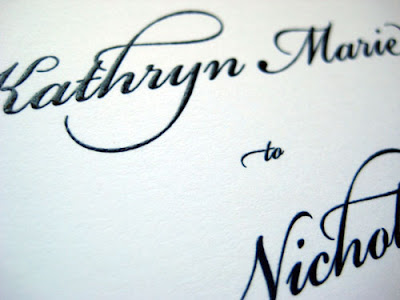 Kathryn Marie
to
Nichol